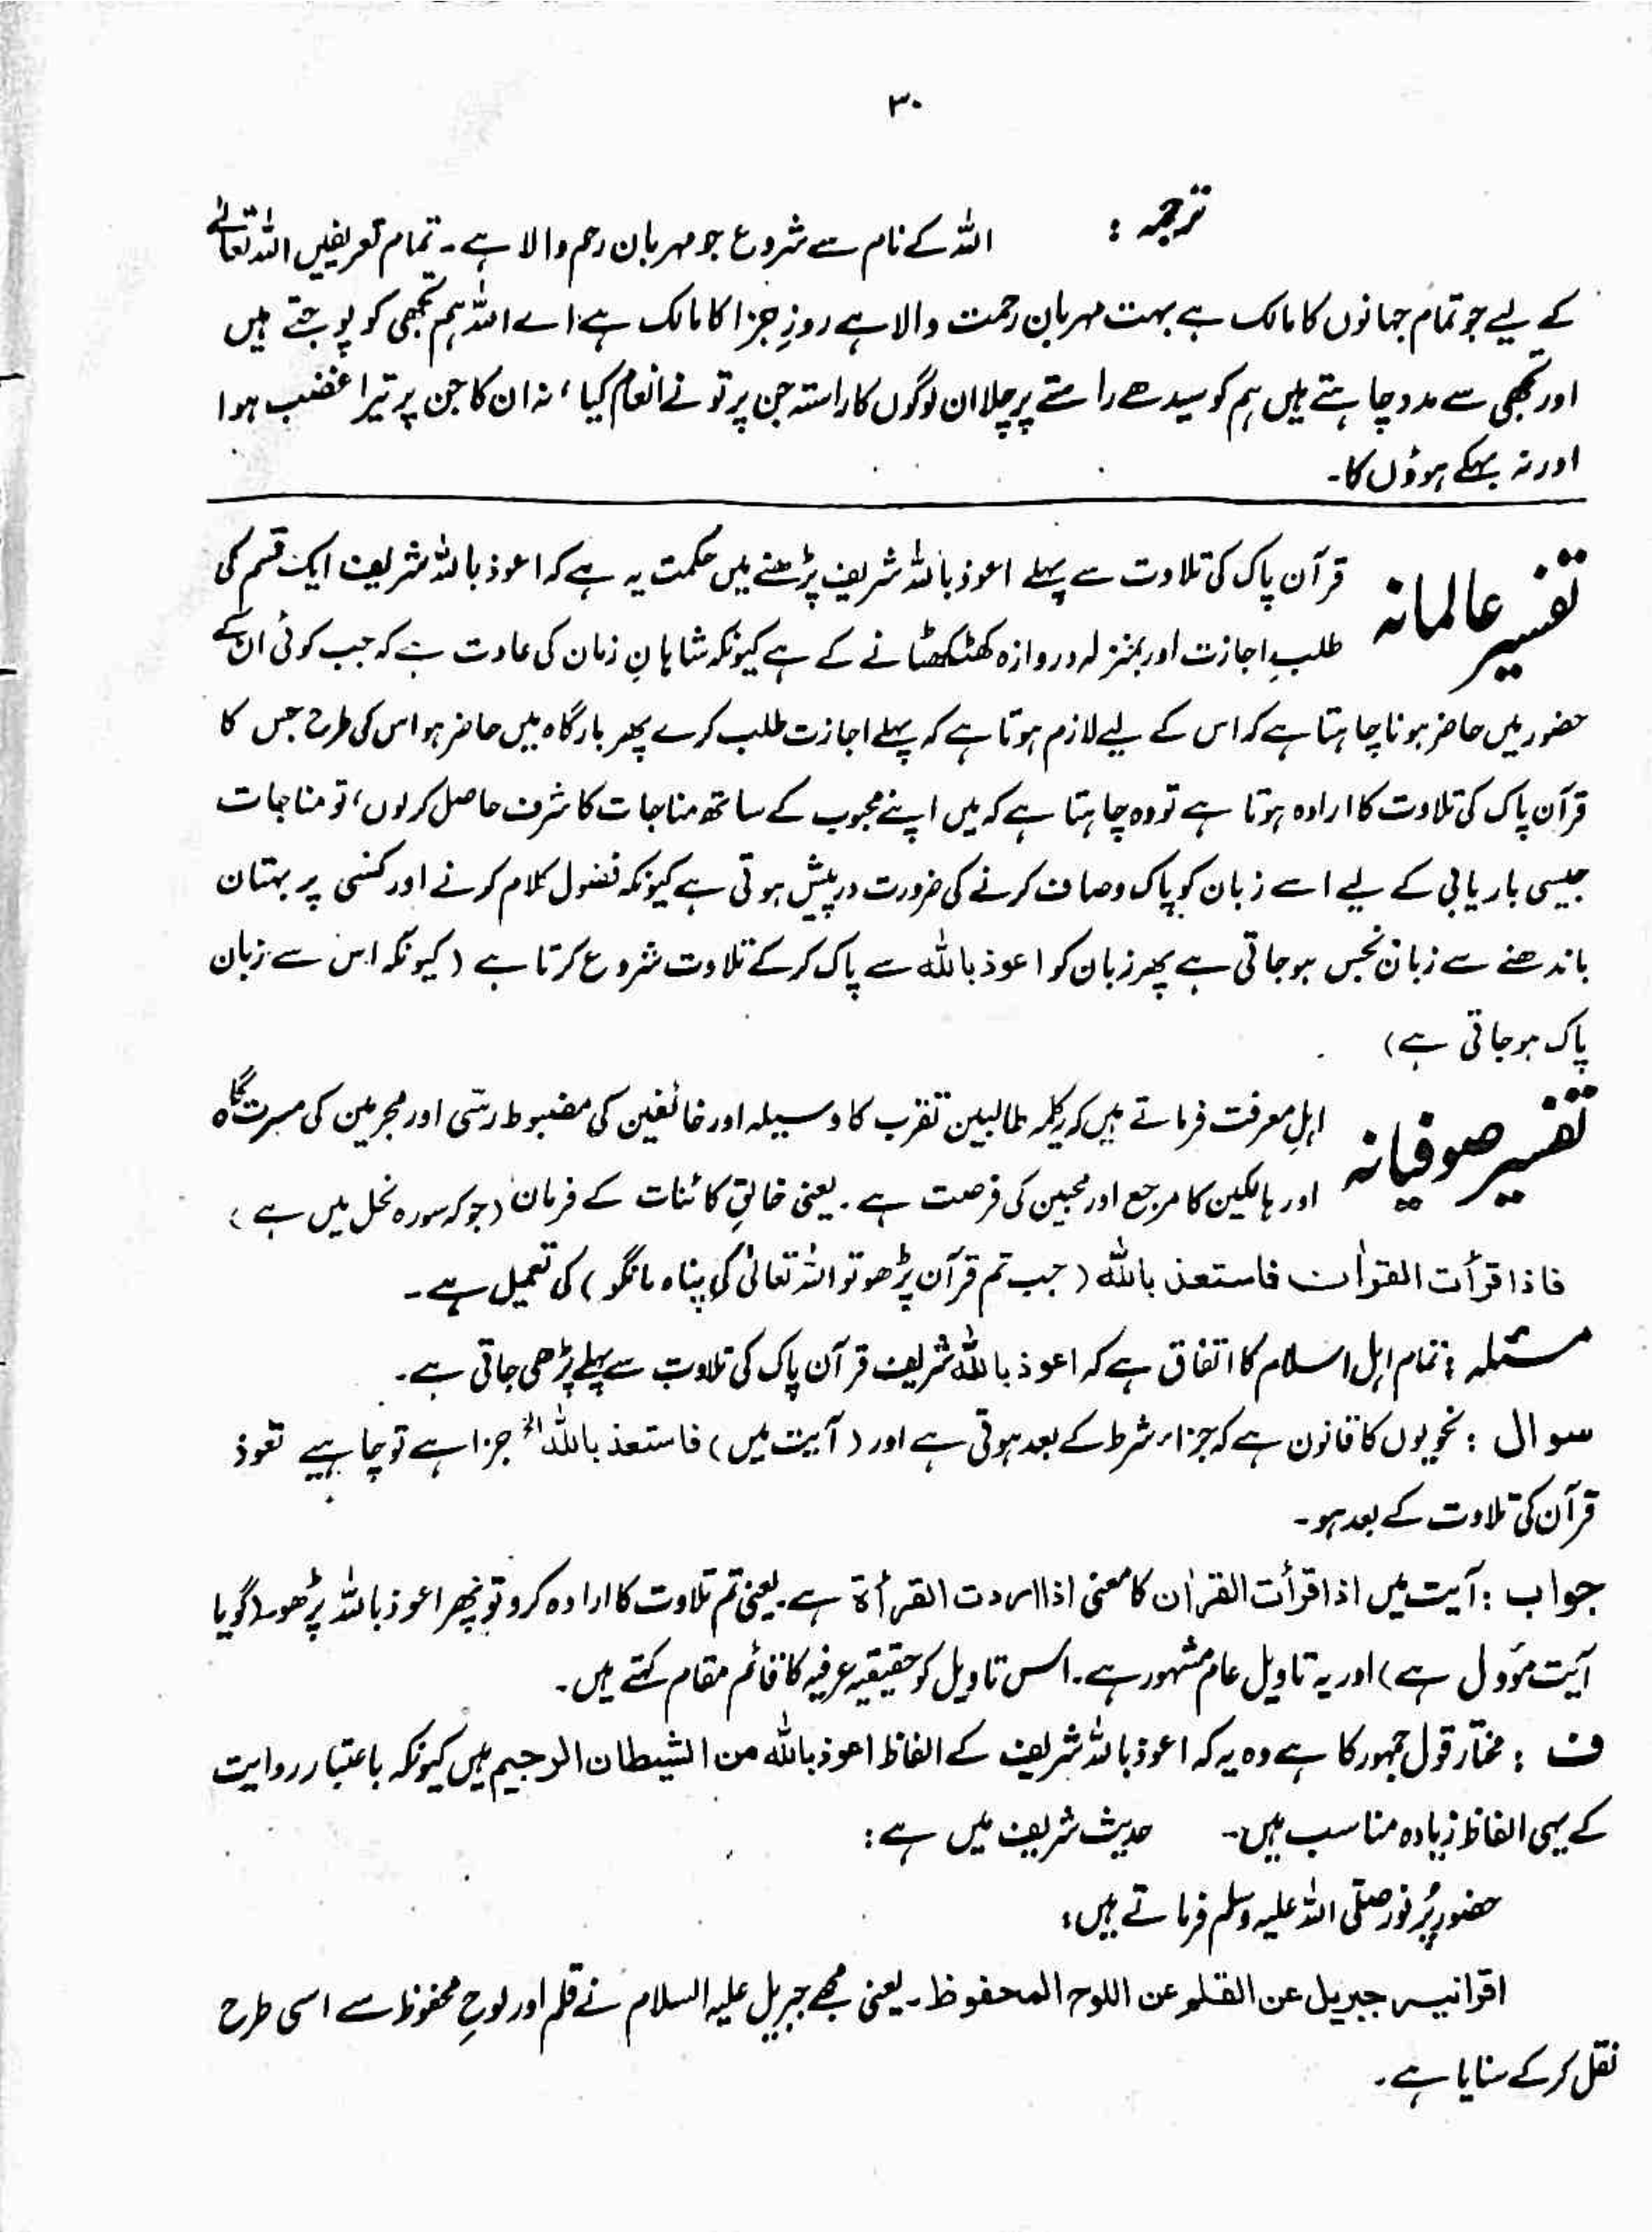 ۳۰
ترجمہ : اللہ کے نام سے شروع جو مہربان رحم والا ہے۔ تمام تعریفیں اللہ تعالےٰ
کے لیے جو تمام جہانوں کا مالک ہے بہت مہربان رحمت والا ہے روزِ جزا کا مالک ہے اے اللہ ہم تجھی کو پوجتے ہیں
اور تجھی سے مدد چاہتے ہیں ہم کو سیدھے راستے پر چلا ان لوگوں کا راستہ جن پر تو نے انعام کیا ، نہ ان کا جن پر تیرا غضب ہوا
اور نہ بہکے ہوؤں کا۔
تفسیر عالمانہ قرآن پاک کی تلاوت سے پہلے اعوذ باللہ شریف پڑھنے میں حکمت یہ ہے کہ اعوذ باللہ شریف ایک قسم کی
طلبِ اجازت اور بمنزلہ دروازہ کھٹکھٹانے کے ہے کیونکہ شاہانِ زمان کی عادت ہے کہ جب کوئی ان کے
حضور میں حاضر ہونا چاہتا ہے کہ اس کے لیے لازم ہوتا ہے کہ پہلے اجازت طلب کرے پھر بارگاہ میں حاضر ہو اس کی طرح جس کا
قرآن پاک کی تلاوت کا ارادہ ہوتا ہے تو وہ چاہتا ہے کہ میں اپنے محبوب کے ساتھ مناجات کا شرف حاصل کر لوں ، تو مناجات
جیسی باریابی کے لیے اسے زبان کو پاک و صاف کرنے کی ضرورت درپیش ہوتی ہے کیونکہ فضول کلام کرنے اور کسی پر بہتان
باندھنے سے زبان نجس ہوجاتی ہے پھر زبان کو اعوذ باللہ سے پاک کر کے تلاوت شروع کرتا ہے ( کیونکہ اس سے زبان
پاک ہوجاتی ہے)
تفسیر صوفیانہ اہلِ معرفت فرماتے ہیں کہ یہ کلمہ طالبین تقرب کا وسیلہ اور خائفین کی مضبوط رسّی اور مجرمین کی مسرت گاہ
اور ہالکین کا مرجع اور محبین کی فرصت ہے۔ یعنی خالقِ کائنات کے فرمان (جو کہ سورہ نحل میں ہے )
فاذا قرأت القراٰن فاستعذ باللہ ( جب تم قرآن پڑھو تو اللہ تعالیٰ کی پناہ مانگو ) کی تعمیل ہے۔
مسئلہ : تمام اہل اسلام کا اتفاق ہے کہ اعوذ باللہ شریف قرآن پاک کی تلاوت سے پہلے پڑھی جاتی ہے۔
سوال : نحویوں کا قانون ہے کہ جزاء شرط کے بعد ہوتی ہے اور ( آیت میں ) فاستعذ باللہ الخ جزا ہے تو چاہیے تعوذ
قرآن کی تلاوت کے بعد ہو۔
جواب : آیت میں اذا قرأت القراٰن کا معنی اذا اردت القرأۃ ہے۔ یعنی تم تلاوت کا ارادہ کرو تو پھر اعوذ باللہ پڑھو۔ (گویا
آیت مؤول ہے) اور یہ تاویل عام مشہور ہے۔ اس تاویل کو حقیقیہ عرفیہ کا قائم مقام کہتے ہیں۔
ف : مختار قول جمہور کا ہے وہ یہ کہ اعوذ باللہ شریف کے الفاظ اعوذ باللہ من الشیطان الرجیم ہیں کیونکہ باعتبار روایت
کے یہی الفاظ زیادہ مناسب ہیں۔ حدیث شریف میں ہے :
حضور پُر نور صلی اللہ علیہ وسلم فرماتے ہیں :
اقرانیہ جبریل عن القلم عن اللوح المحفوظ۔ یعنی مجھے جبریل علیہ السلام نے قلم اور لوحِ محفوظ سے اسی طرح
نقل کر کے سنایا ہے۔